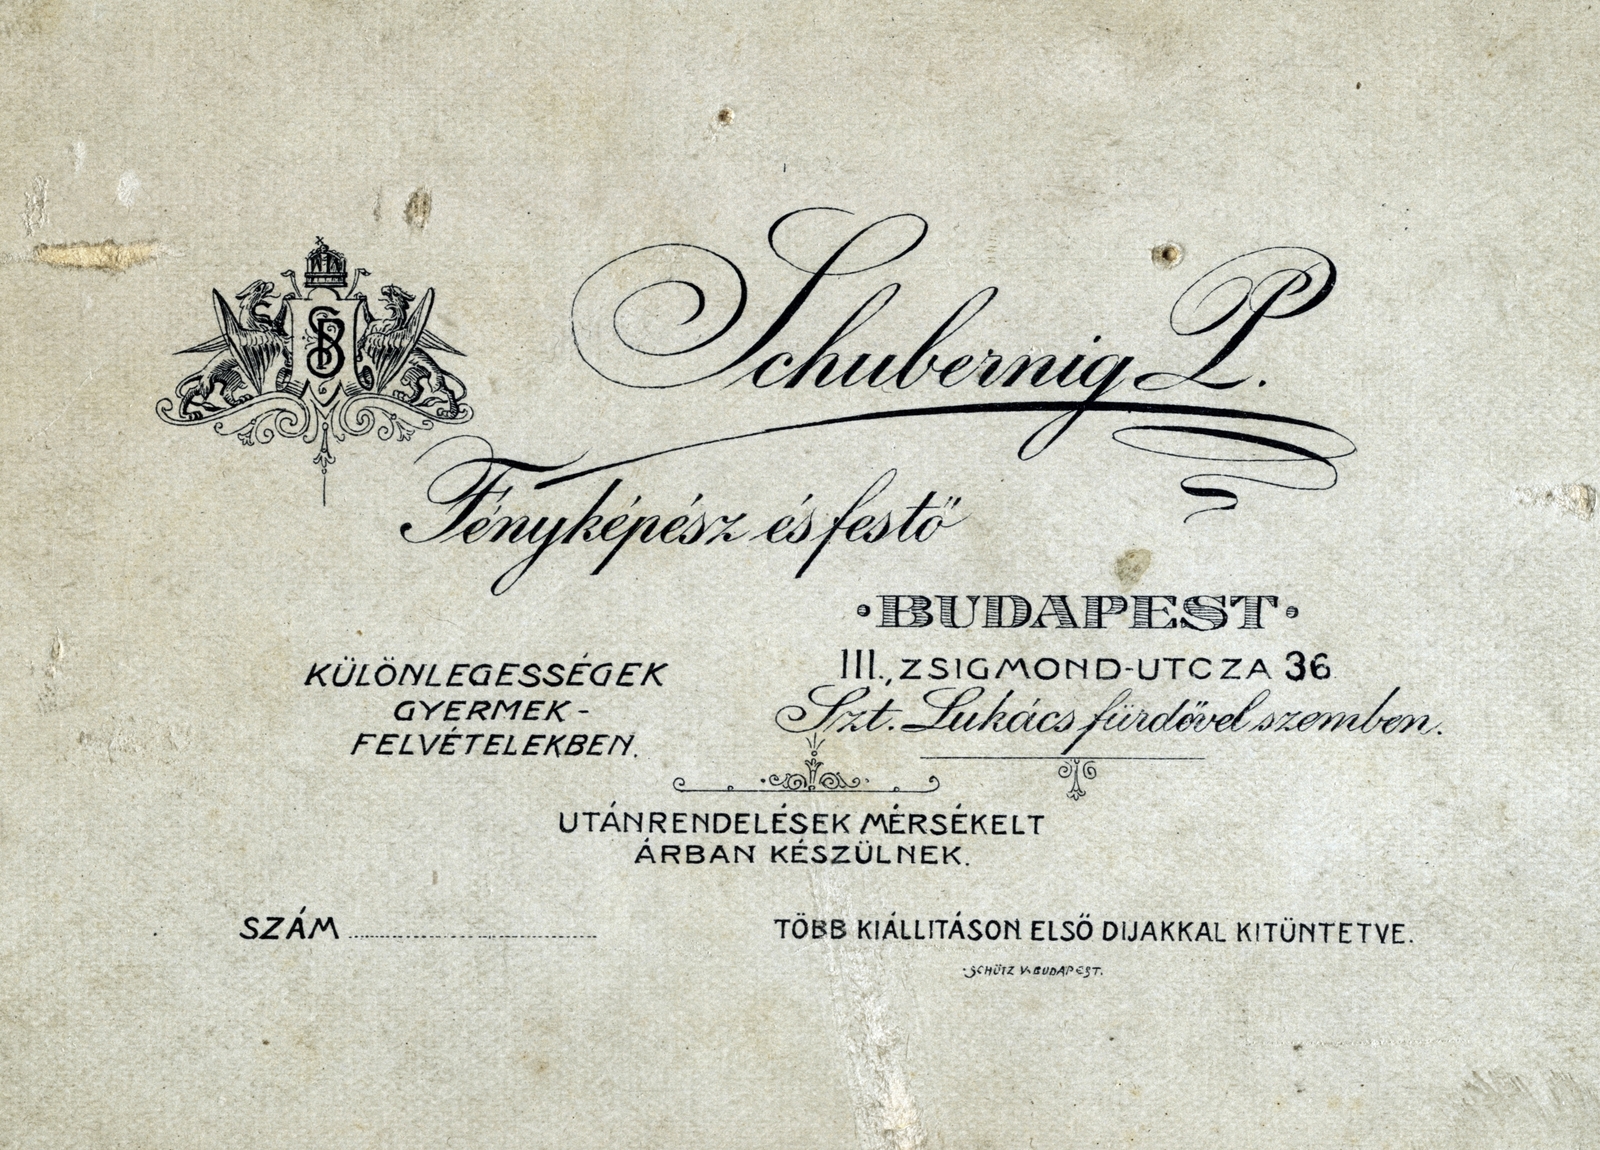 Schubernig P.
Fényképész és festő
·BUDAPEST·
III., ZSIGMOND-UTCZA 36
Szt. Lukács fürdővel szemben.
KÜLÖNLEGESSÉGEK
GYERMEK-
FELVÉTELEKBEN.
UTÁNRENDELÉSEK MÉRSÉKELT
ÁRBAN KÉSZÜLNEK.
SZÁM
TÖBB KIÁLLITÁSON ELSŐ DIJAKKAL KITÜNTETVE.
SCHÜTZ V. BUDAPEST.